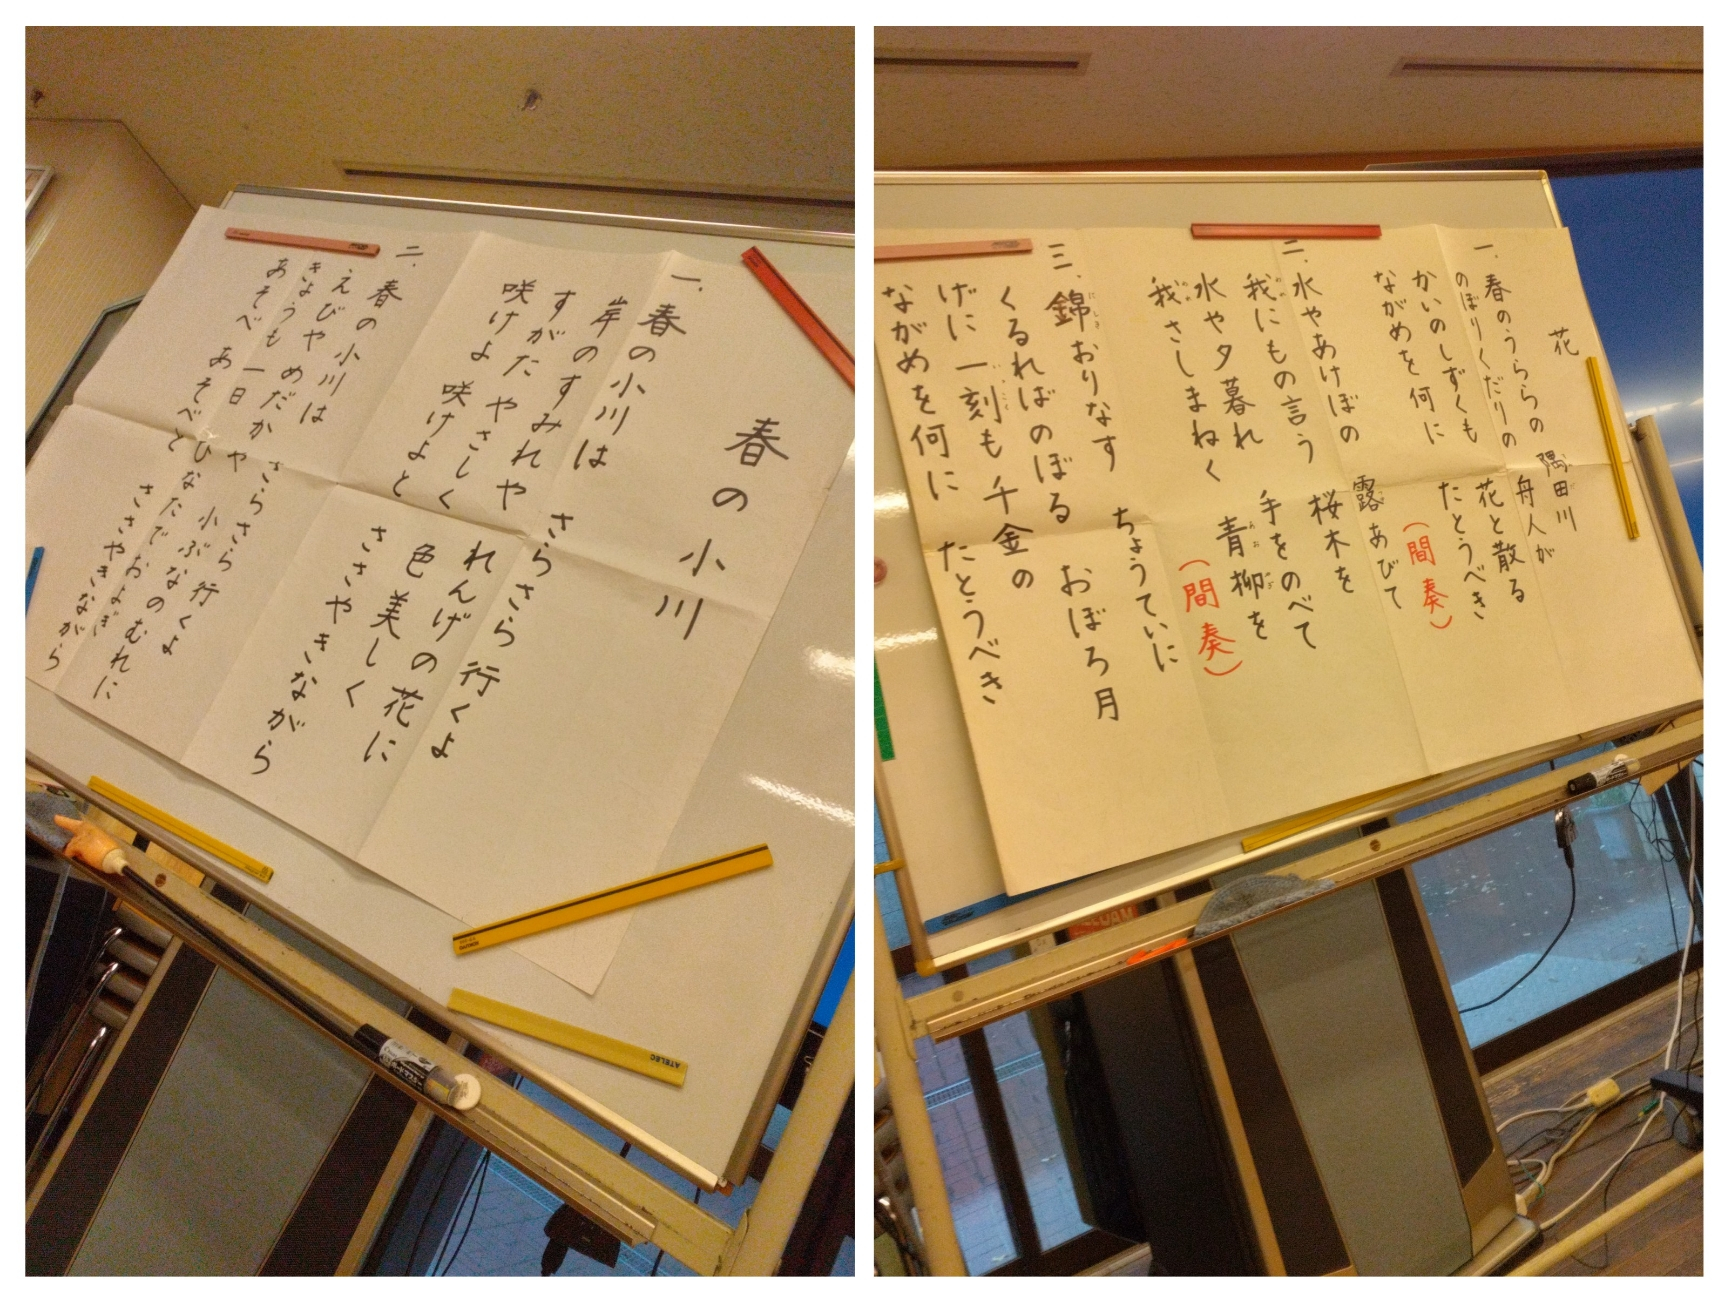 春の小川
一、春の小川は さらさら行くよ
岸のすみれや れんげの花に
すがたやさしく 色美しく
咲けよ咲けよと ささやきながら
二、春の小川は さらさら行くよ
えびやめだかや 小ぶなのむれに
きょうも一日 ひなたでおよぎ
あそべあそべと ささやきながら
ATELEC
花
一、春のうららの 隅田川
のぼりくだりの 舟人が
かいのしずくも 花と散る
ながめを何に たとうべき
(間奏)
二、水やあけぼの 露あびて
我にもの言う 桜木を
水や夕暮れ 手をのべて
我さしまねく 青柳を
(間奏)
三、錦おりなす ちょうていに
くるればのぼる おぼろ月
げに一刻も 千金の
ながめを何に たとうべき